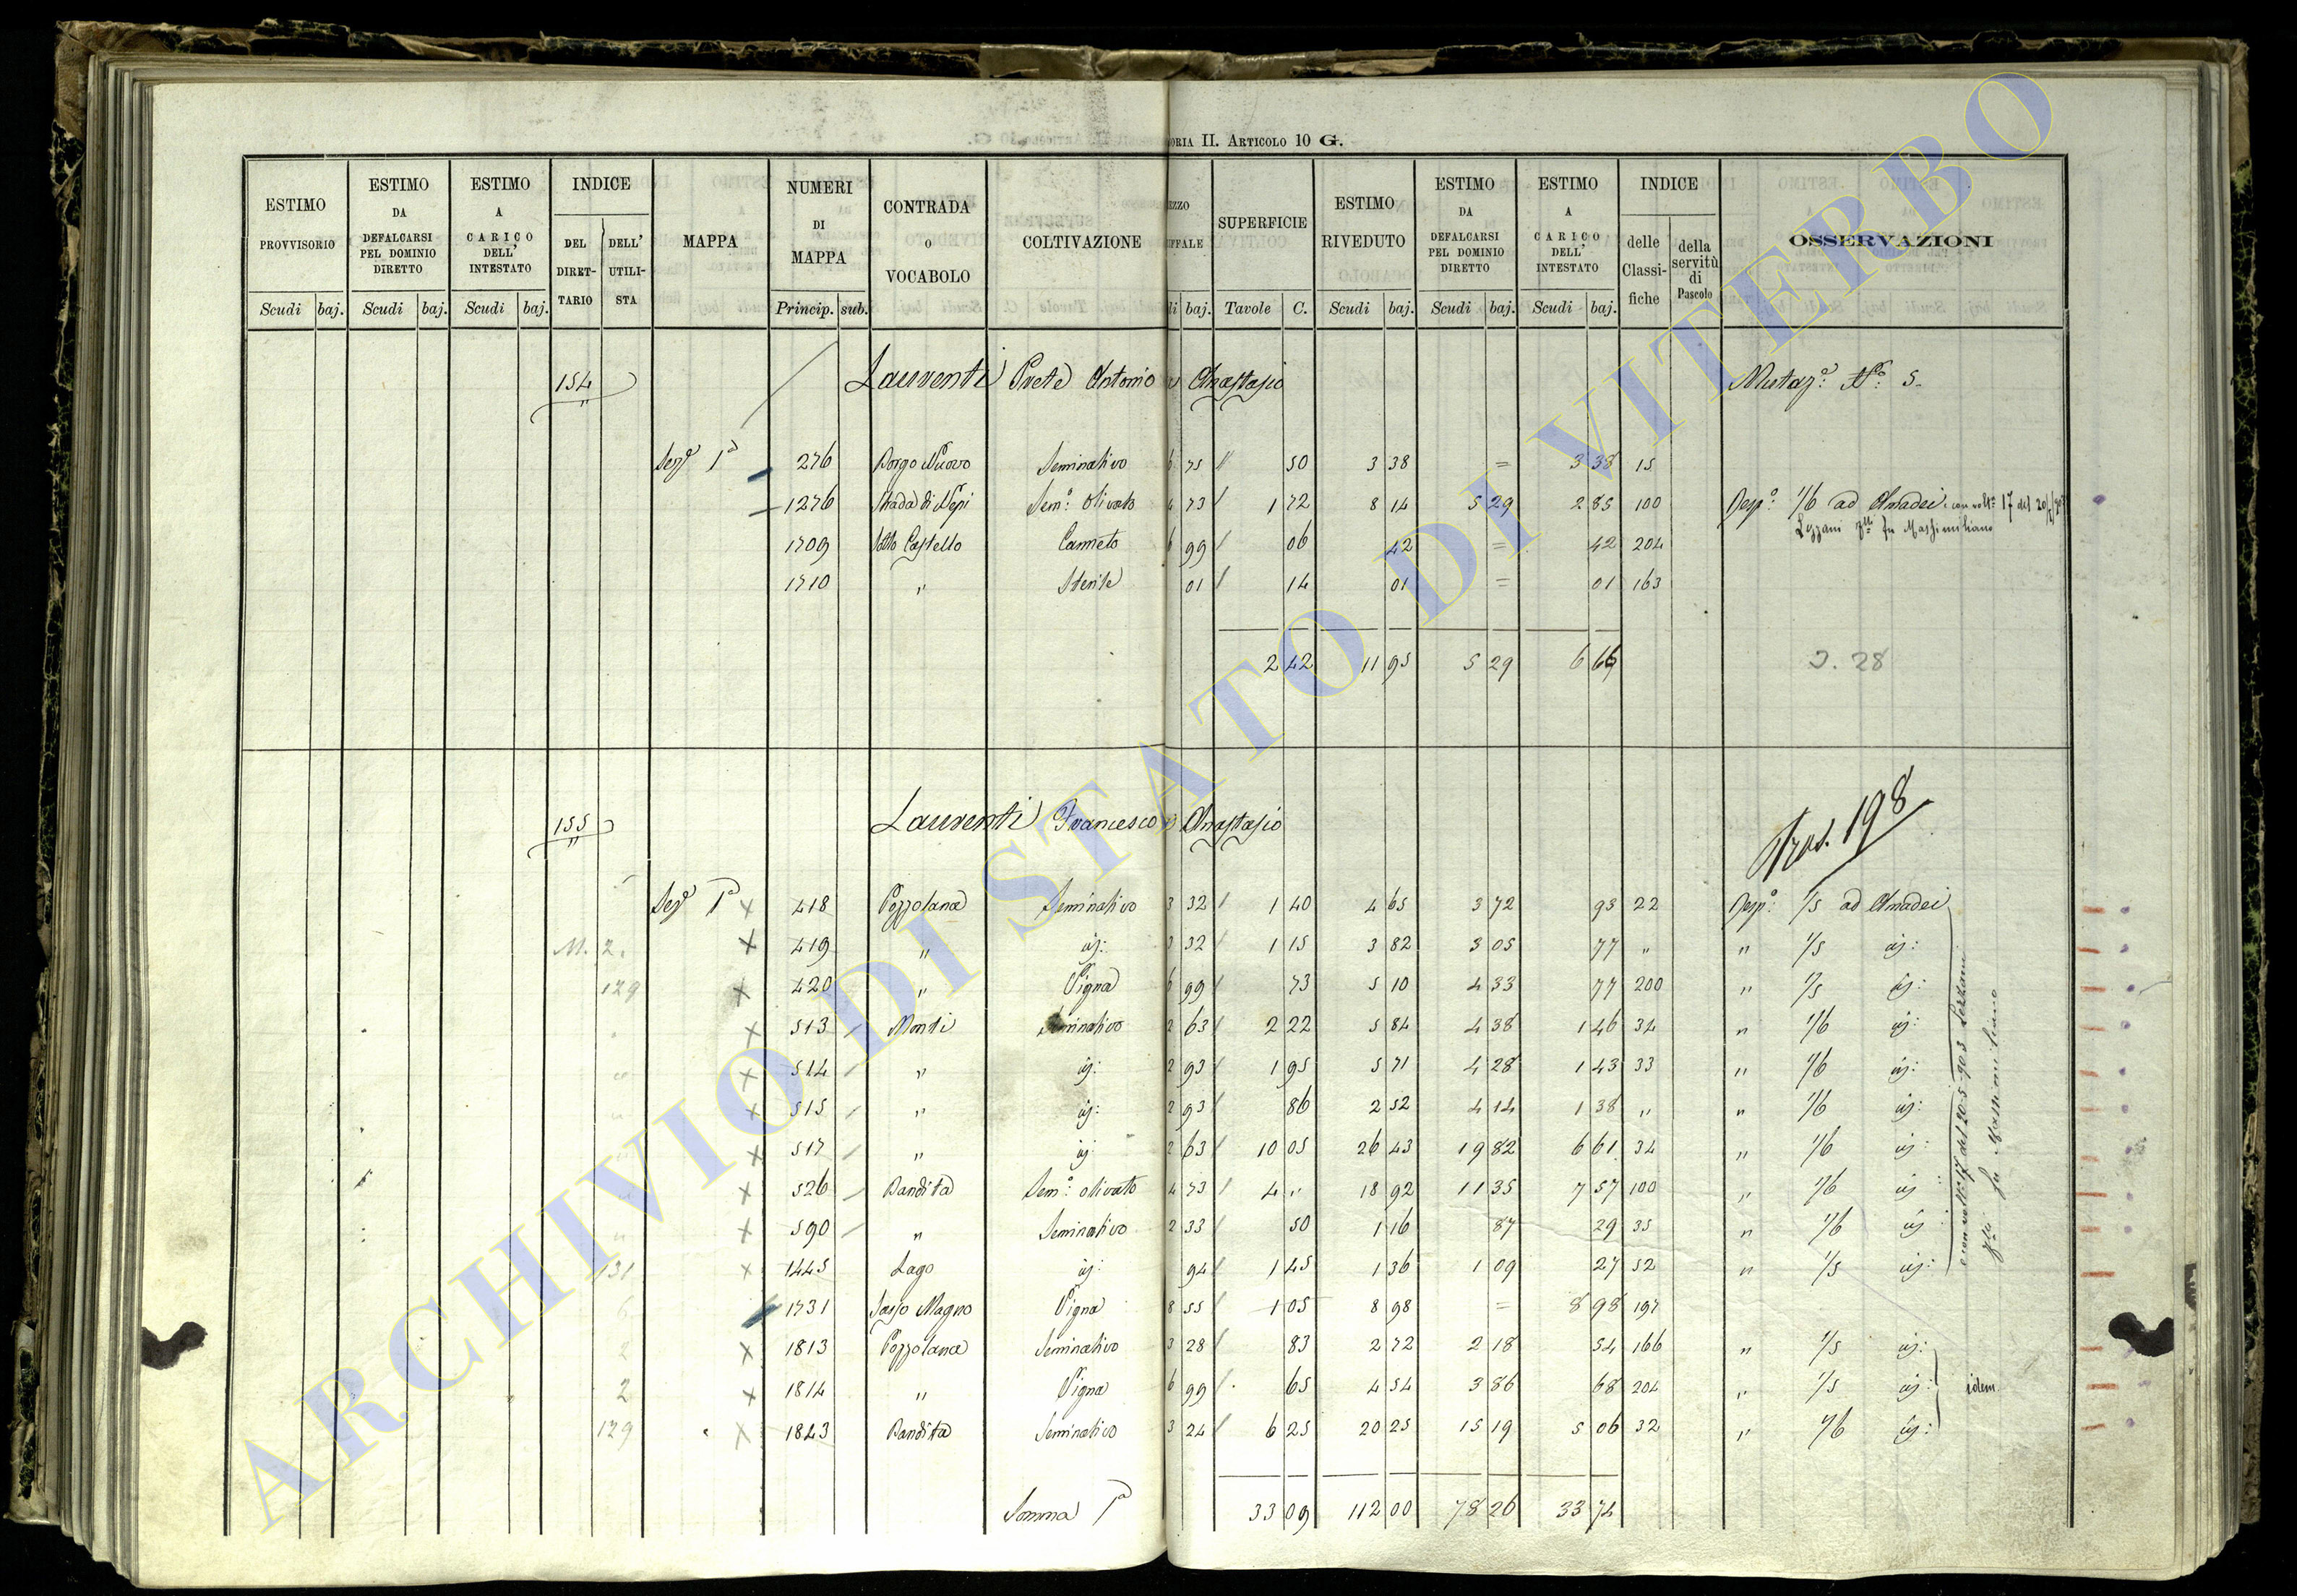 ORIA II. ARTICOLO 10 G.
ESTIMO PROVVISORIO | ESTIMO DA DEFALCARSI PEL DOMINIO DIRETTO | ESTIMO A CARICO DELL' INTESTATO | INDICE DEL DIRETTARIO | DELL' UTILISTA | MAPPA | NUMERI DI MAPPA | CONTRADA O VOCABOLO | COLTIVAZIONE | EZZO IFFALE | SUPERFICIE | ESTIMO RIVEDUTO | ESTIMO DA DEFALCARSI PEL DOMINIO DIRETTO | ESTIMO A CARICO DELL' INTESTATO | INDICE delle Classifiche | della servitù di Pascolo | OSSERVAZIONI
Scudi | baj. | Scudi | baj. | Scudi | baj. | Princip. | sub. | di | baj. | Tavole | C. | Scudi | baj. | Scudi | baj. | Scudi | baj.
154 Laurenti Prete Antonio Anastasio Mutazº. Nº: 5.
Sezº 1ª 276 Borgo Nuovo Seminativo 6 75 " 50 3 38 = 3 38 15
1276 Strada di Nepi Semº: olivato 4 73 1 72 8 14 5 29 2 85 100 Respº: 1/6 ad Amadei con voltª 17 del
Lezzani flli fu Massimiliano
1709 Sotto Castello Canneto 6 99 06 42 = 42 204
1710 " Sterile 01 14 01 = 01 163
2 42 11 95 5 29 6 66 28
155 Laurenti Francesco Anastasio Tras. 198
Sezº 1ª × 418 Pozzolana Seminativo 3 32 1 40 4 65 3 72 93 22 Respº: 1/5 ad Amadei
M. 2. × 419 " id: 3 32 1 15 3 82 3 05 77 " " 1/5 id:
129 × 420 " Vigna 6 99 73 5 10 4 33 77 200 " 1/5 id:
× 513 Monti Seminativo 2 63 2 22 5 84 4 38 1 46 34 " 1/6 id:
× 514 " id: 2 93 1 95 5 71 4 28 1 43 33 " 1/6 id:
× 515 " id: 2 93 86 2 52 4 14 1 38 " " 1/6 id:
× 517 " id: 2 63 10 05 26 43 19 82 6 61 34 " 1/6 id:
× 526 Bandita Semº: olivato 4 73 4 " 18 92 11 35 7 57 100 " 1/6 id
× 590 " Seminativo 2 33 50 1 16 87 29 35 " 1/6 id
131 × 1445 Lago id: 94 1 45 1 36 1 09 27 52 " 1/5 id:
1731 Sasso Magno Vigna 8 55 1 05 8 98 = 8 98 197
2 × 1813 Pozzolana Seminativo 3 28 83 2 72 2 18 54 166 " 1/5 id:
2 × 1814 " Vigna 6 99 65 4 54 3 86 68 204 " 1/5 id: idem
129 × 1843 Bandita Seminativo 3 24 6 25 20 25 15 19 5 06 32 " 1/6 id:
e con voltª 17 del 20-5-903 Lezzani
flli fu Massimiliano
Somma 1ª 33 09 112 00 78 26 33 74
ARCHIVIO DI STATO DI VITERBO